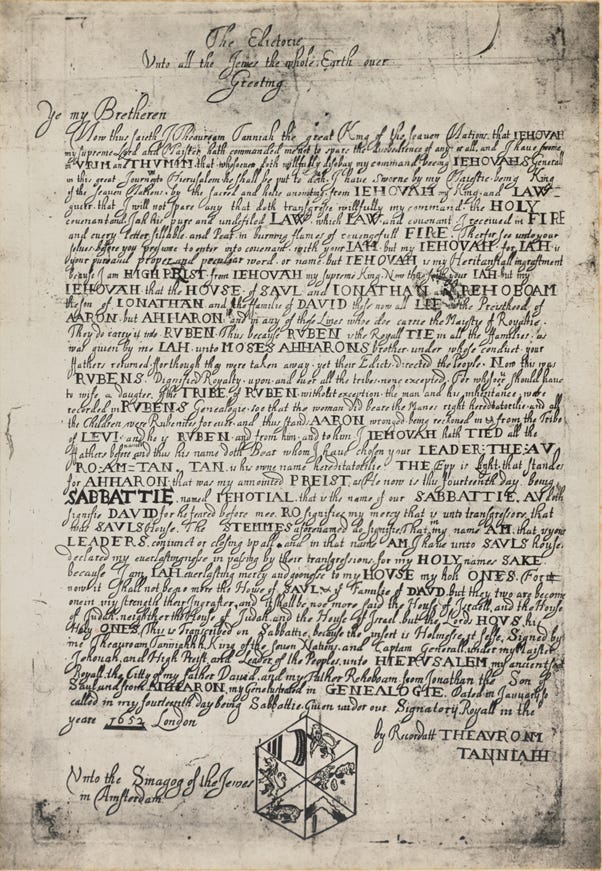 The Edictorie
Unto all the Jewes the whole Earth over
Greeting
Ye my Bretheren
Now thus saieth I Theauroam Tanniah the great King of the seaven Nations, that IEHOVAH
my supreme Lord and Master hath commanded me not to spare the disobedience of any at all, and I have
VRIM and THVMIN that whosoever doth willfully disobay my command being IEHOVAHS Generall
in this great Journey to Jerusalem he shall be put to death. I have Sworne by my Majestie being King
of the Seaven Nations, by the sacred and holie anointing from IEHOVAH my King and LAW
giver: that I will not spare any that doth transgrese willfully my command: the HOLY
covenant and Iah his pure and undefiled LAW, which LAW and covenant I received in FIRE
and every letter sillable and in burning flames of FIRE. Therfor see unto your
selves before you presume to enter into covenant with your IAH: but my IEHOVAH for IAH is
your pure and proper and peculiar word, or name but IEHOVAH is my
because I am HIGH PRIST from IEHOVAH my supreme King. Now your IAH but my
IEHOVAH that the HOUSE of SAUL and IONATHAN REHOBOAM
the son of IONATHAN and the familie of DAVID these now all the Preisthood of
AARON but AHHARON and in any of those Lines whoe doe carrie the Maiesty of Royaltie.
They do carry it into RVBEN. Thus because RVBEN is the Royall TIE in all the Families, as
was given by me IAH unto MOSES AHHARONS brother: under whose conduct your
Fathers returned: for though they were taken away yet their Edicts directed the People. Now this was
RVBENS Dignified Royalty upon and over all the tribes none excepted. For whosoever should have
to wife a daugter of the TRIBE of RVBEN without exception the man and his inhiritance were
recorded in RVBENS Genealogie: so that the woman did beare the Manes right hereditaritie and all
the Children were Rubenites for ever: and thus stand AARON wronged being reckoned from the Tribe
of LEVI and he is RVBEN and from him and to him I IEHOVAH hath TIED all the
Fathers before and thus his name doth Beat whom I have chosen your LEADER: THE: AU
RO: AM: TAN. TAN. is his owne name hereditatorie. THE Epp is Light that standes
for AHHARON: that was my annointed PREIST, as He now is this fourteenth day being
SABBATTIE, named IEHOTIAL, that is the name of our SABBATTIE, AV doth
signifie DAVID for he feared before mee. RO signifies my mercy that is unto transgressors, that
was SAULS House. The STEMMES sirenamed do signifie That my name AM, that upon
LEADERS conjunct or closing up all, and in that name AM I have unto SAVLS house
declared my everlastingnesse in passing by their transgressions for my HOLY names SAKE
because I am IAH everlasting mercy and goodnesse to my HOUSE my holy ONES. For
now it shall not be no more the House of SAUL or Familie of DAVD but they two are become
one in my strength their Ingrafter, and it shall be noe more said the House of Israell, and the House
of Judah, neighther the House of Judah and the House of Israel but the Lords HOVS his
Holy ONES. This is Transcribed on Sabbattie, because the infest is Holmest it selfe, Signed by
me Theauroam Tanniahhh King of the Seven Nations, and Captain Generall under my Master
Jehovah, and High Preist and Leader of the Peoples, unto HIERVSALEM my ancient
Royall, the Citty of my father David, and my Father Rehoboam from Jonathan the Son
Saul and from AHHARON, my Genelustrated in GENEALOGIE. Dated in January
called in my fourteenth day being Sabbattie. Given under our Signatory Royall in the
yeare 1652 London
by Recordatt THEAVROM
TANNIAHH
Unto the Sinagog of the Jewes
in Amsterdam